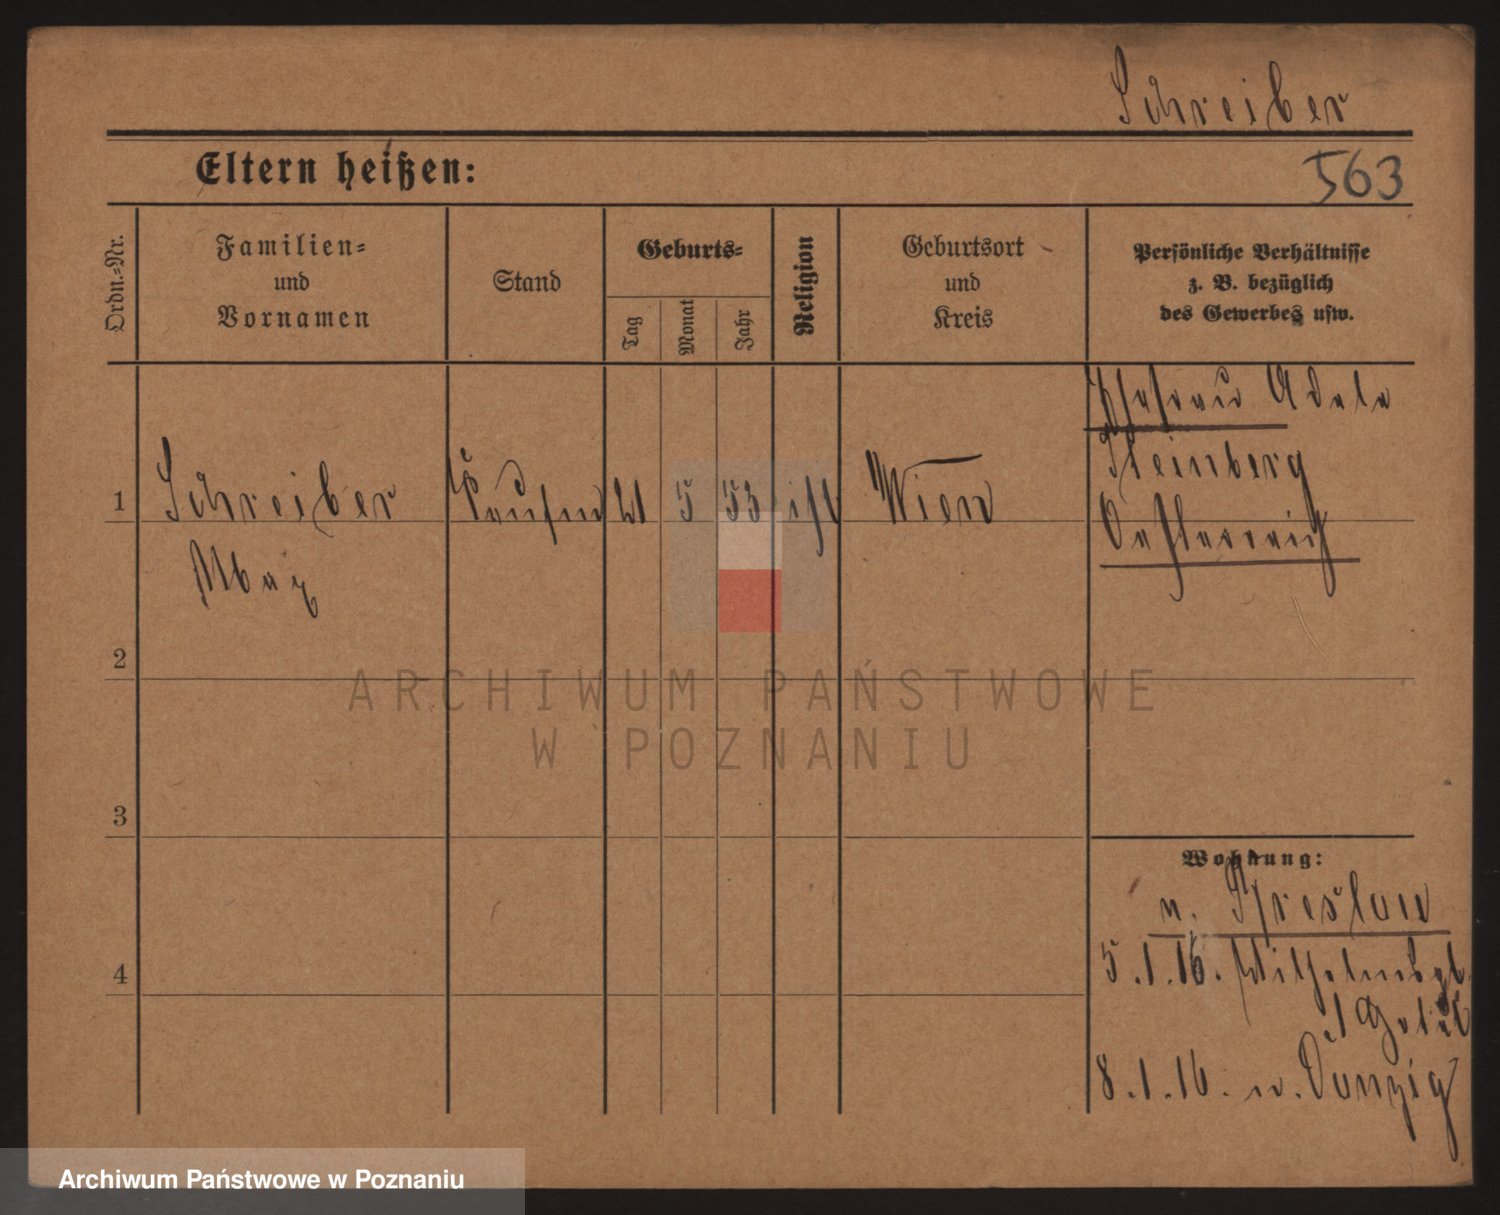 Schreiber
Eltern heißen:
563
Ordn.-Nr.
Familien-
und
Vornamen
Stand
Geburts-
Tag
Monat
Jahr
Religion
Geburtsort
und
Kreis
Persönliche Verhältnisse
z. B. bezüglich
des Gewerbes usw.
Ehefrau Adele
Steinberg
Oesterreich
1
Schreiber
Max
21
5
53
isr
Wien
2
3
4
Wohnung:
n. Breslau
5.1.16. Wilhelms
8.1.16. n. Danzig
ARCHIWUM PAŃSTWOWE
W POZNANIU
Archiwum Państwowe w Poznaniu